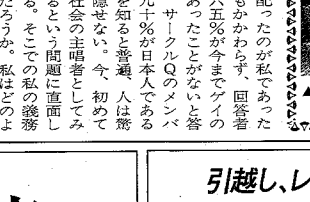 配ったのが私であった
もかかわらず、回答者
六五%が今までゲイの
あったことがないと答
サークルQのメンバ
九十%が日本人である
を知ると普通、人は驚
隠せない。今、初めて
社会の主唱者としてみ
るという問題に直面し
る。そこでの私の義務
だろうか。私はどのよ
引越し、レ